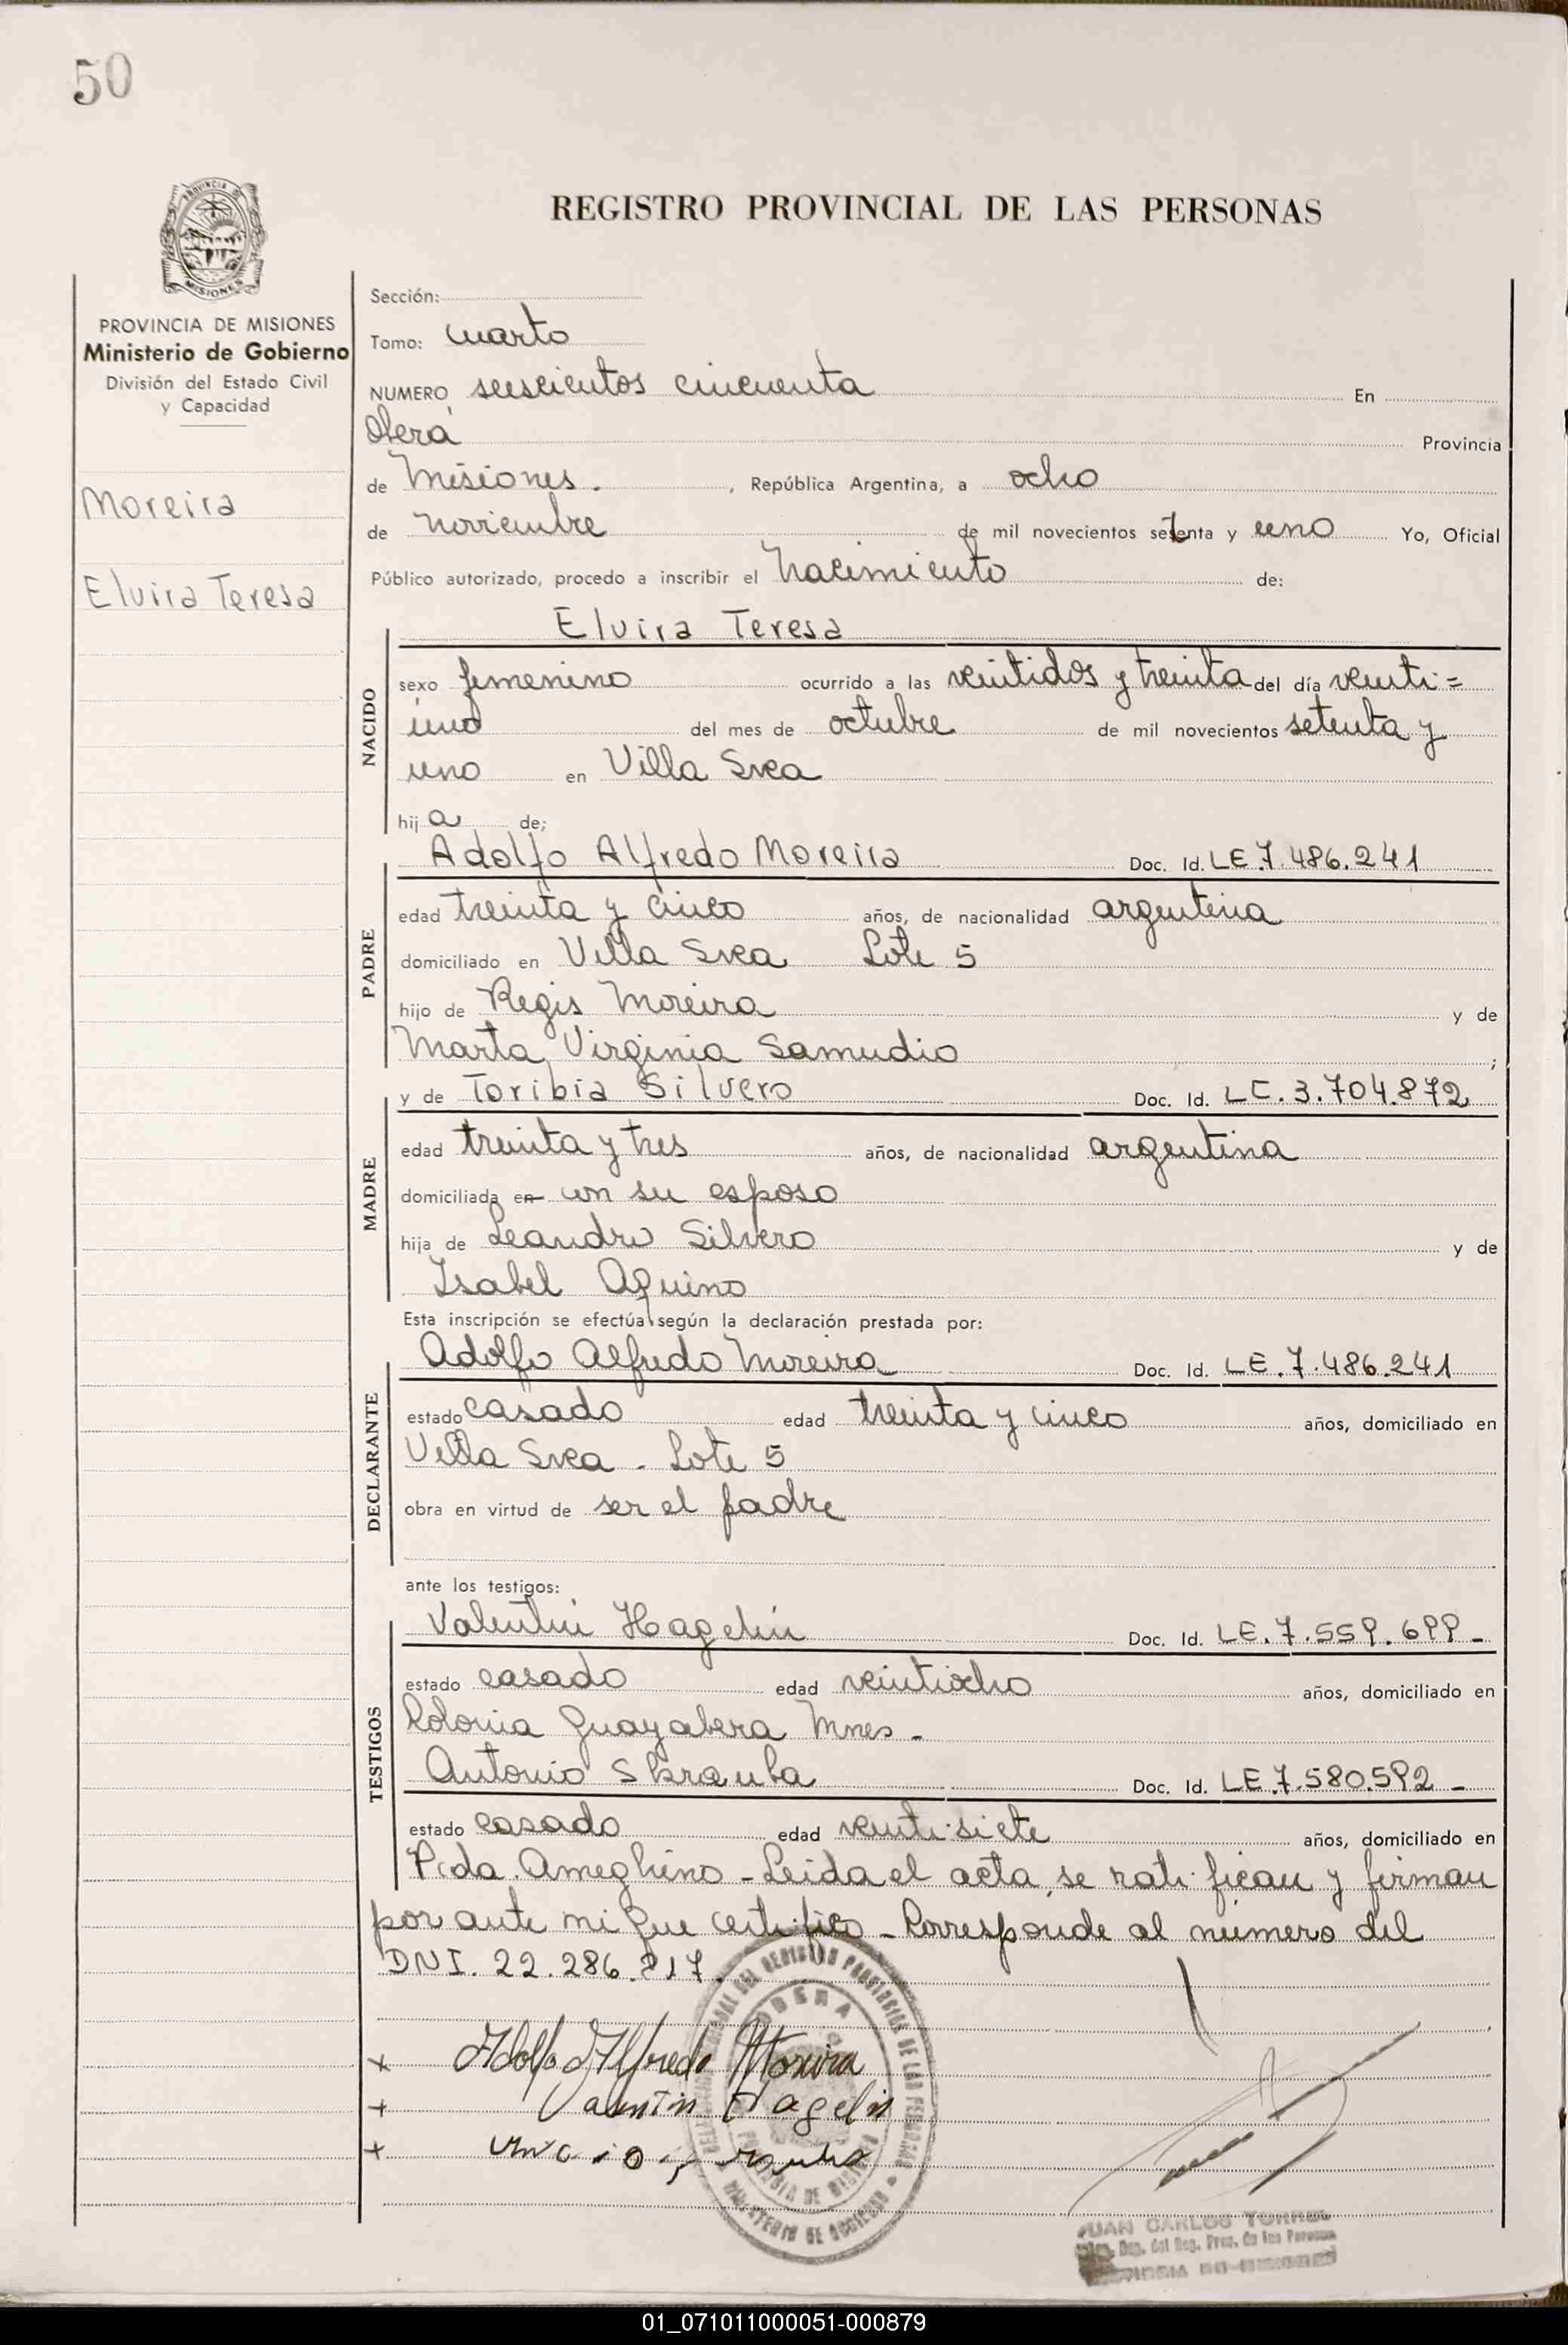 50
REGISTRO PROVINCIAL DE LAS PERSONAS
MISIONES
PROVINCIA DE MISIONES
Ministerio de Gobierno
División del Estado Civil
y Capacidad
Moreira
Elvira Teresa
Sección:
Tomo: cuarto
NUMERO seiscientos cincuenta En
Oberá Provincia
de Misiones. , República Argentina, a ocho
de noviembre de mil novecientos setenta y uno Yo, Oficial
Público autorizado, procedo a inscribir el nacimiento de:
NACIDO
Elvira Teresa
sexo femenino ocurrido a las veintidos y treinta del día veinti=
uno del mes de octubre de mil novecientos setenta y
uno en Villa Svea
hija de;
PADRE
Adolfo Alfredo Moreira Doc. Id. LE 7.486.241
edad treinta y cinco años, de nacionalidad argentina
domiciliado en Villa Svea Lote 5
hijo de Regis Moreira y de
Marta Virginia Samudio ;
MADRE
y de Toribia Silvero Doc. Id. LC. 3.704.872
edad treinta y tres años, de nacionalidad argentina
domiciliada en con su esposo
hija de Leandro Silvero y de
Isabel Aquino
Esta inscripción se efectúa según la declaración prestada por:
DECLARANTE
Adolfo Alfredo Moreira Doc. Id. LE. 7.486.241
estado casado edad treinta y cinco años, domiciliado en
Villa Svea - Lote 5
obra en virtud de ser el padre
ante los testigos:
TESTIGOS
Valentin Hagelin Doc. Id. LE. 7.559.699 -
estado casado edad veintiocho años, domiciliado en
Colonia Guayabera Mnes -
Antonio Doc. Id. LE 7.580.592 -
estado casado edad veintisiete años, domiciliado en
Pcda. Ameghino - Leida el acta, se ratifican y firman
por ante mi que certifico - Corresponde al número del
DNI. 22.286.917.
x Adolfo Alfredo Moreira
+ Valentin Hagelin
+
OBERA
JUAN CARLOS
Reg. Prov. de las Personas
01_071011000051-000879